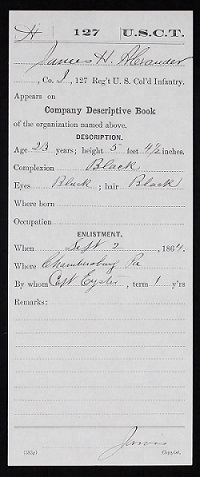 A | 127 | U.S.C.T.
James H. Alexander
, Co. I, 127 Reg't U. S. Col'd Infantry.
Appears on
Company Descriptive Book
of the organization named above.
DESCRIPTION.
Age 23 years; height 5 feet 4½ inches.
Complexion Black
Eyes Black; hair Black
Where born
Occupation
ENLISTMENT.
When Sept 2, 1864.
Where Chambersburg Pa
By whom Capt Eyster, term 1 y'rs
Remarks:
James
Copyist.